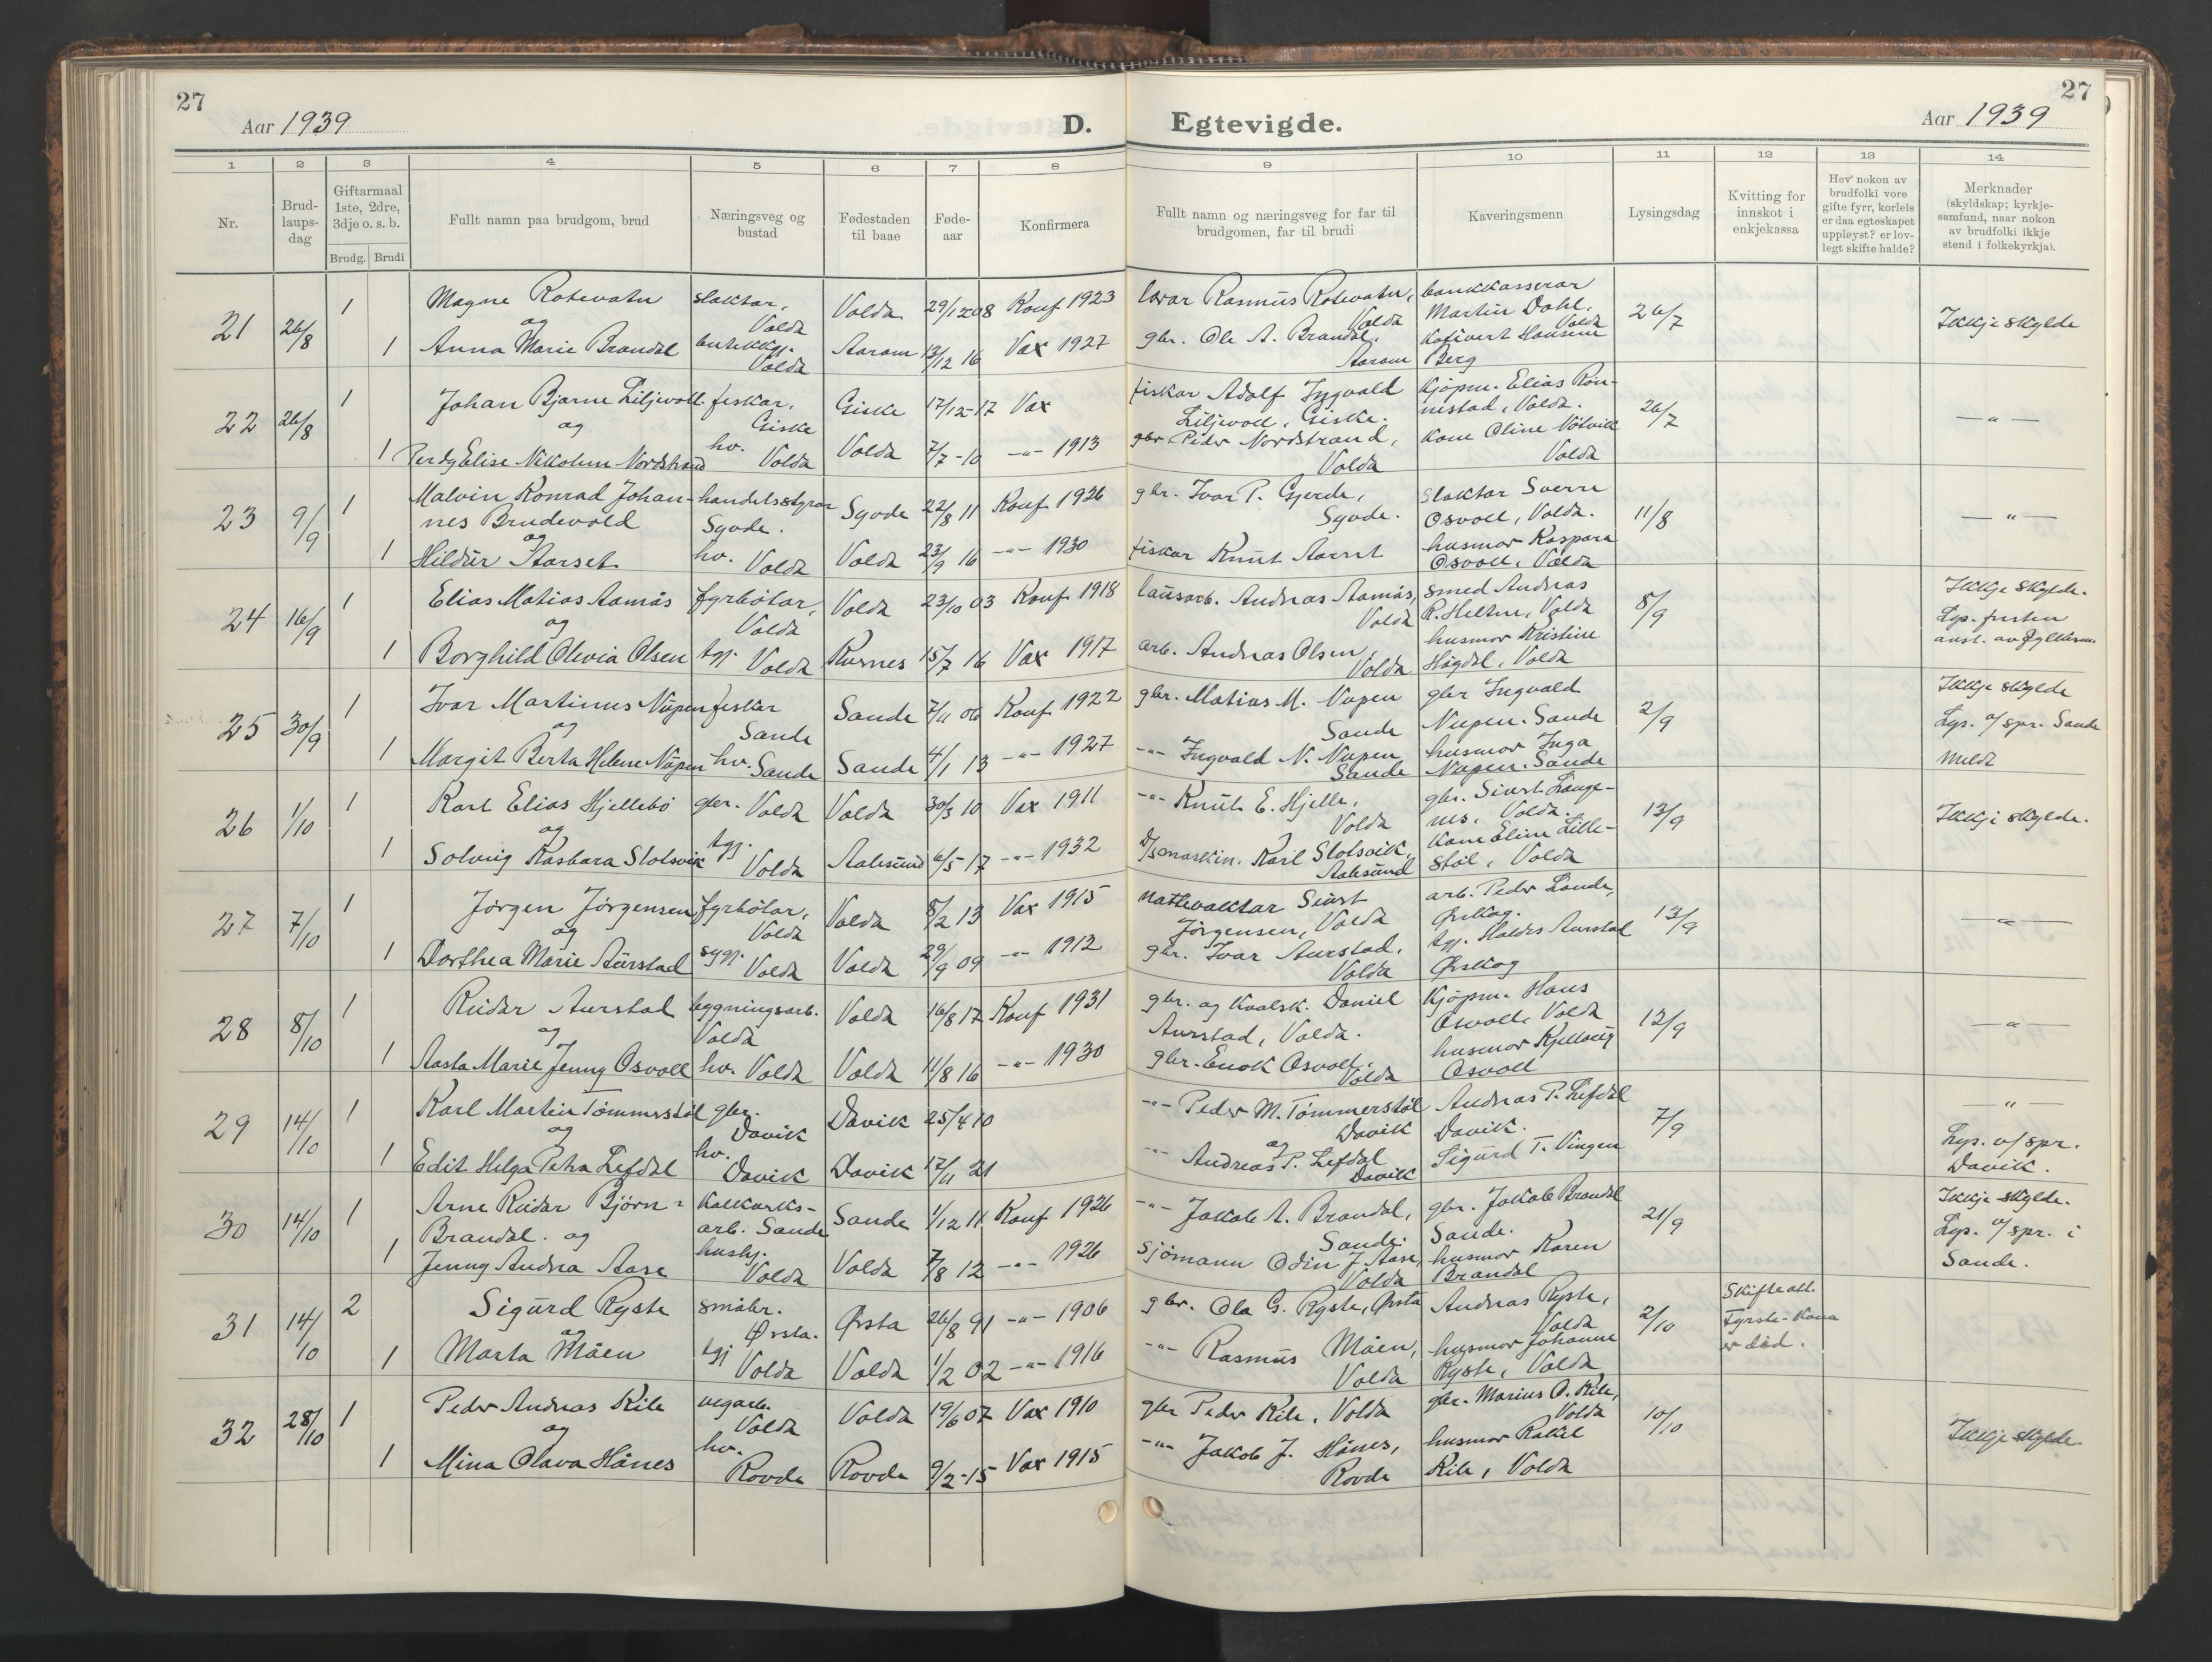 27
Aar 1939
D.
Egtevigde.
27
Aar 1939
1 2 3 4 5 6 7 8 9 10 11 12 13 14
Nr.
Brud-
laups-
dag
Giftarmaal
1ste, 2dre,
3dje o. s. b.
Brudg. Brudi
Fullt namn paa brudgom, brud
Næringsveg og
bustad
Fødestaden
til baae
Føde-
aar
Konfirmera
Fullt namn og næringsveg for far til
brudgomen, far til brudi
Kaveringsmenn
Lysingsdag
Kvitting for
innskot i
enkjekassa
Hev nokon av
brudfolki vore
gifte fyrr, korleis
er daa egteskapet
uppløyst? er lov-
legt skifte halde?
Merknader
(skyldskap; kyrkje-
samfund, naar nokon
av brudfolki ikkje
stend i folkekyrkja).
21 26/8 1 Magne Rotevatn slaktar, Volda Volda 29/12 08 Konf 1923 Rasmus Rotevatn, Volda bankkasserar Martin Dahl, Volda 26/7 Ikkje skylde
og
1 Anna Marie Brandal Volda Aaram 13/12 16 Vax 1927 gbr. Ole A. Brandal, Aaram Hansine Berg
22 26/8 1 Johan Bjarne Liljevoll fiskar, Giske Giske 17/12-17 Vax fiskar Adolf Ingvald Liljevoll, Giske. Kjøpm. Elias Røn-
nestad, Volda. 26/7 — " —
og
1 Elise Nikoline Nordstrand hv. Volda Volda 7/7-10 -"- 1913 gbr Peder Nordstrand, Volda Kone Oline Nøtvik Volda
23 9/9 1 Malvin Konrad Johan-
nes Brudevold handelsstyrar Syvde. Syvde 22/8 11 Konf 1926 gbr. Ivar P. Gjerde, Syvde. Slaktar Sverre Osvoll, Volda. 11/8 — " —
og
1 Hildur Aarset hv. Volda Volda 23/9 16 -"- 1930 fiskar Knut Aarset husmor Kaspara Osvoll, Volda
24 16/9 1 Elias Matias Aamås fyrbøtar, Volda Volda 23/10 03 Konf 1918 lausarb. Andreas Aamås, Volda smed Andreas R. Heltne, Volda 8/9 Ikkje skylde.
Lys. fristen
og
1 Borghild Olivia Olsen tgj. Volda Kornes 15/7 16 Vax 1917 arb. Andreas Olsen, Volda husmor Kristine Høgdal, Volda
25 30/9 1 Ivar Martinus Nupen fiskar Sande Sande 7/11 06 Konf 1922 gbr. Matias M. Nupen Sande gbr Ingvald Nupen. Sande 2/9 Ikkje skylde
Lys. o/ spr. Sande
meld
og
1 Margit Berta Helene Nupen hv. Sande Sande 4/1 13 -"- 1927 -"- Ingvald N. Nupen Sande husmor Inga Nupen. Sande
26 1/10 1 Karl Elias Hjellebø gbr. Volda Volda 30/3 10 Vax 1911 -"- Knut E. Hjelle, Volda gbr. Sivert Lange-
nes, Volda. 13/9 Ikkje skylde.
og
1 Solveig Rasbara Slotsvik tgj. Volda Aalesund 6/5 17 -"- 1932 Karl Slotsvik, Aalesund Kone Eline Lille-
støl, Volda
27 7/10 1 Jørgen Jørgensen fyrbøtar, Volda Volda 8/2 13 Vax 1915 nattevaktar Sivert Jørgensen, Volda arb. Peder Lande, Ørskog. 13/9 — " —
og
1 Dorthea Marie Aurstad sygj. Volda Volda 29/9 09 -"- 1912 gbr. Ivar Aurstad, Volda tgj. Haldis Aurstad Ørskog
28 8/10 1 Reidar Aurstad bygningsarb. Volda Volda 16/8 17 Konf 1931 gbr. og kvalsk. Daniel Aurstad, Volda. Kjøpm. Hans Osvoll, Volda 12/9 — " —
og
1 Aasta Marie Jenny Osvoll hv. Volda Volda 11/8 16 -"- 1930 gbr. Enok Osvoll, Volda husmor Kjellaug Osvoll
29 14/10 1 Karl Martin Tømmerstøl gbr. Davik Davik 25/4 10 -"- Peder M. Tømmerstøl Davik Andreas P. Lefdal Davik. 7/9 — " —
Lys. v/ spr.
Davik.
og
1 Edit Helga Petra Lefdal hv. Davik Davik 17/11 21 -"- Andreas P. Lefdal Davik Sigurd T. Vingen
30 14/10 1 Arne Reidar Bjørn-
Brandal. og kalkverks-
arb. Sande Sande 1/12 11 Konf 1926 -"- Jakob A. Brandal, Sande. gbr. Jakob Brandal Sande. 21/9 Ikkje skylde.
Lys. o/ spr. i
Sande.
1 Jenny Andrea Aase hushj. Volda Volda 7/8 12 -"- 1926 Sjømann Odin J. Aase, Volda husmor Karen Brandal
31 14/10 2 Sigurd Ryste småbr. Ørsta. Ørsta 26/8 91 -"- 1906 gbr. Ola G. Ryste, Ørsta Andreas Ryste, Volda 2/10 Skifteatt.
Fyrste-Kona
er død.
og
1 Marta Måen tgj Volda Volda 1/2 02 -"- 1916 -"- Rasmus Måen, Volda husmor Johanne Ryste, Volda
32 28/10 1 Peder Andreas Kile vegarb. Volda Volda 19/6 07 Vax 1910 gbr Peder Kile, Volda gbr. Marius O. Kile, Volda 10/10 Ikkje skylde
og
1 Mina Olava Hånes hv. Rovde Rovde 9/2-15 Vax 1915 -"- Jakob J. Hånes, Rovde husmor Rakel Kile, Volda